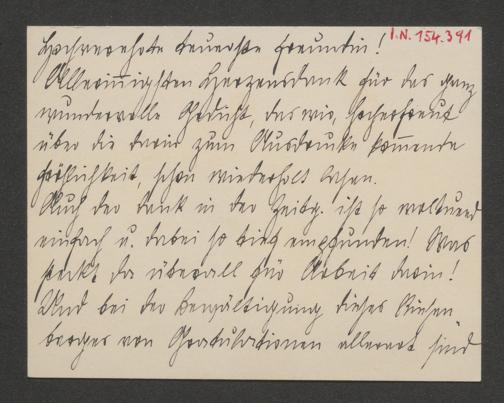 I.N. 154.391
Hochverehrte teuerste Freundin!
Allerinnigsten Herzensdank für das ganz
wundervolle Gedicht, das wir, hocherfreut
über die darin zum Ausdrucke kommende
Fröhlichkeit, schon wiederholt lasen.
Auch der Dank in der Zeitg. ist so wohltuend
einfach u. dabei so tief empfunden! Was
steckt da überall für Arbeit darin!
Und bei der Bewältigung dieses Riesen
berges von Gratulationen allerart sind